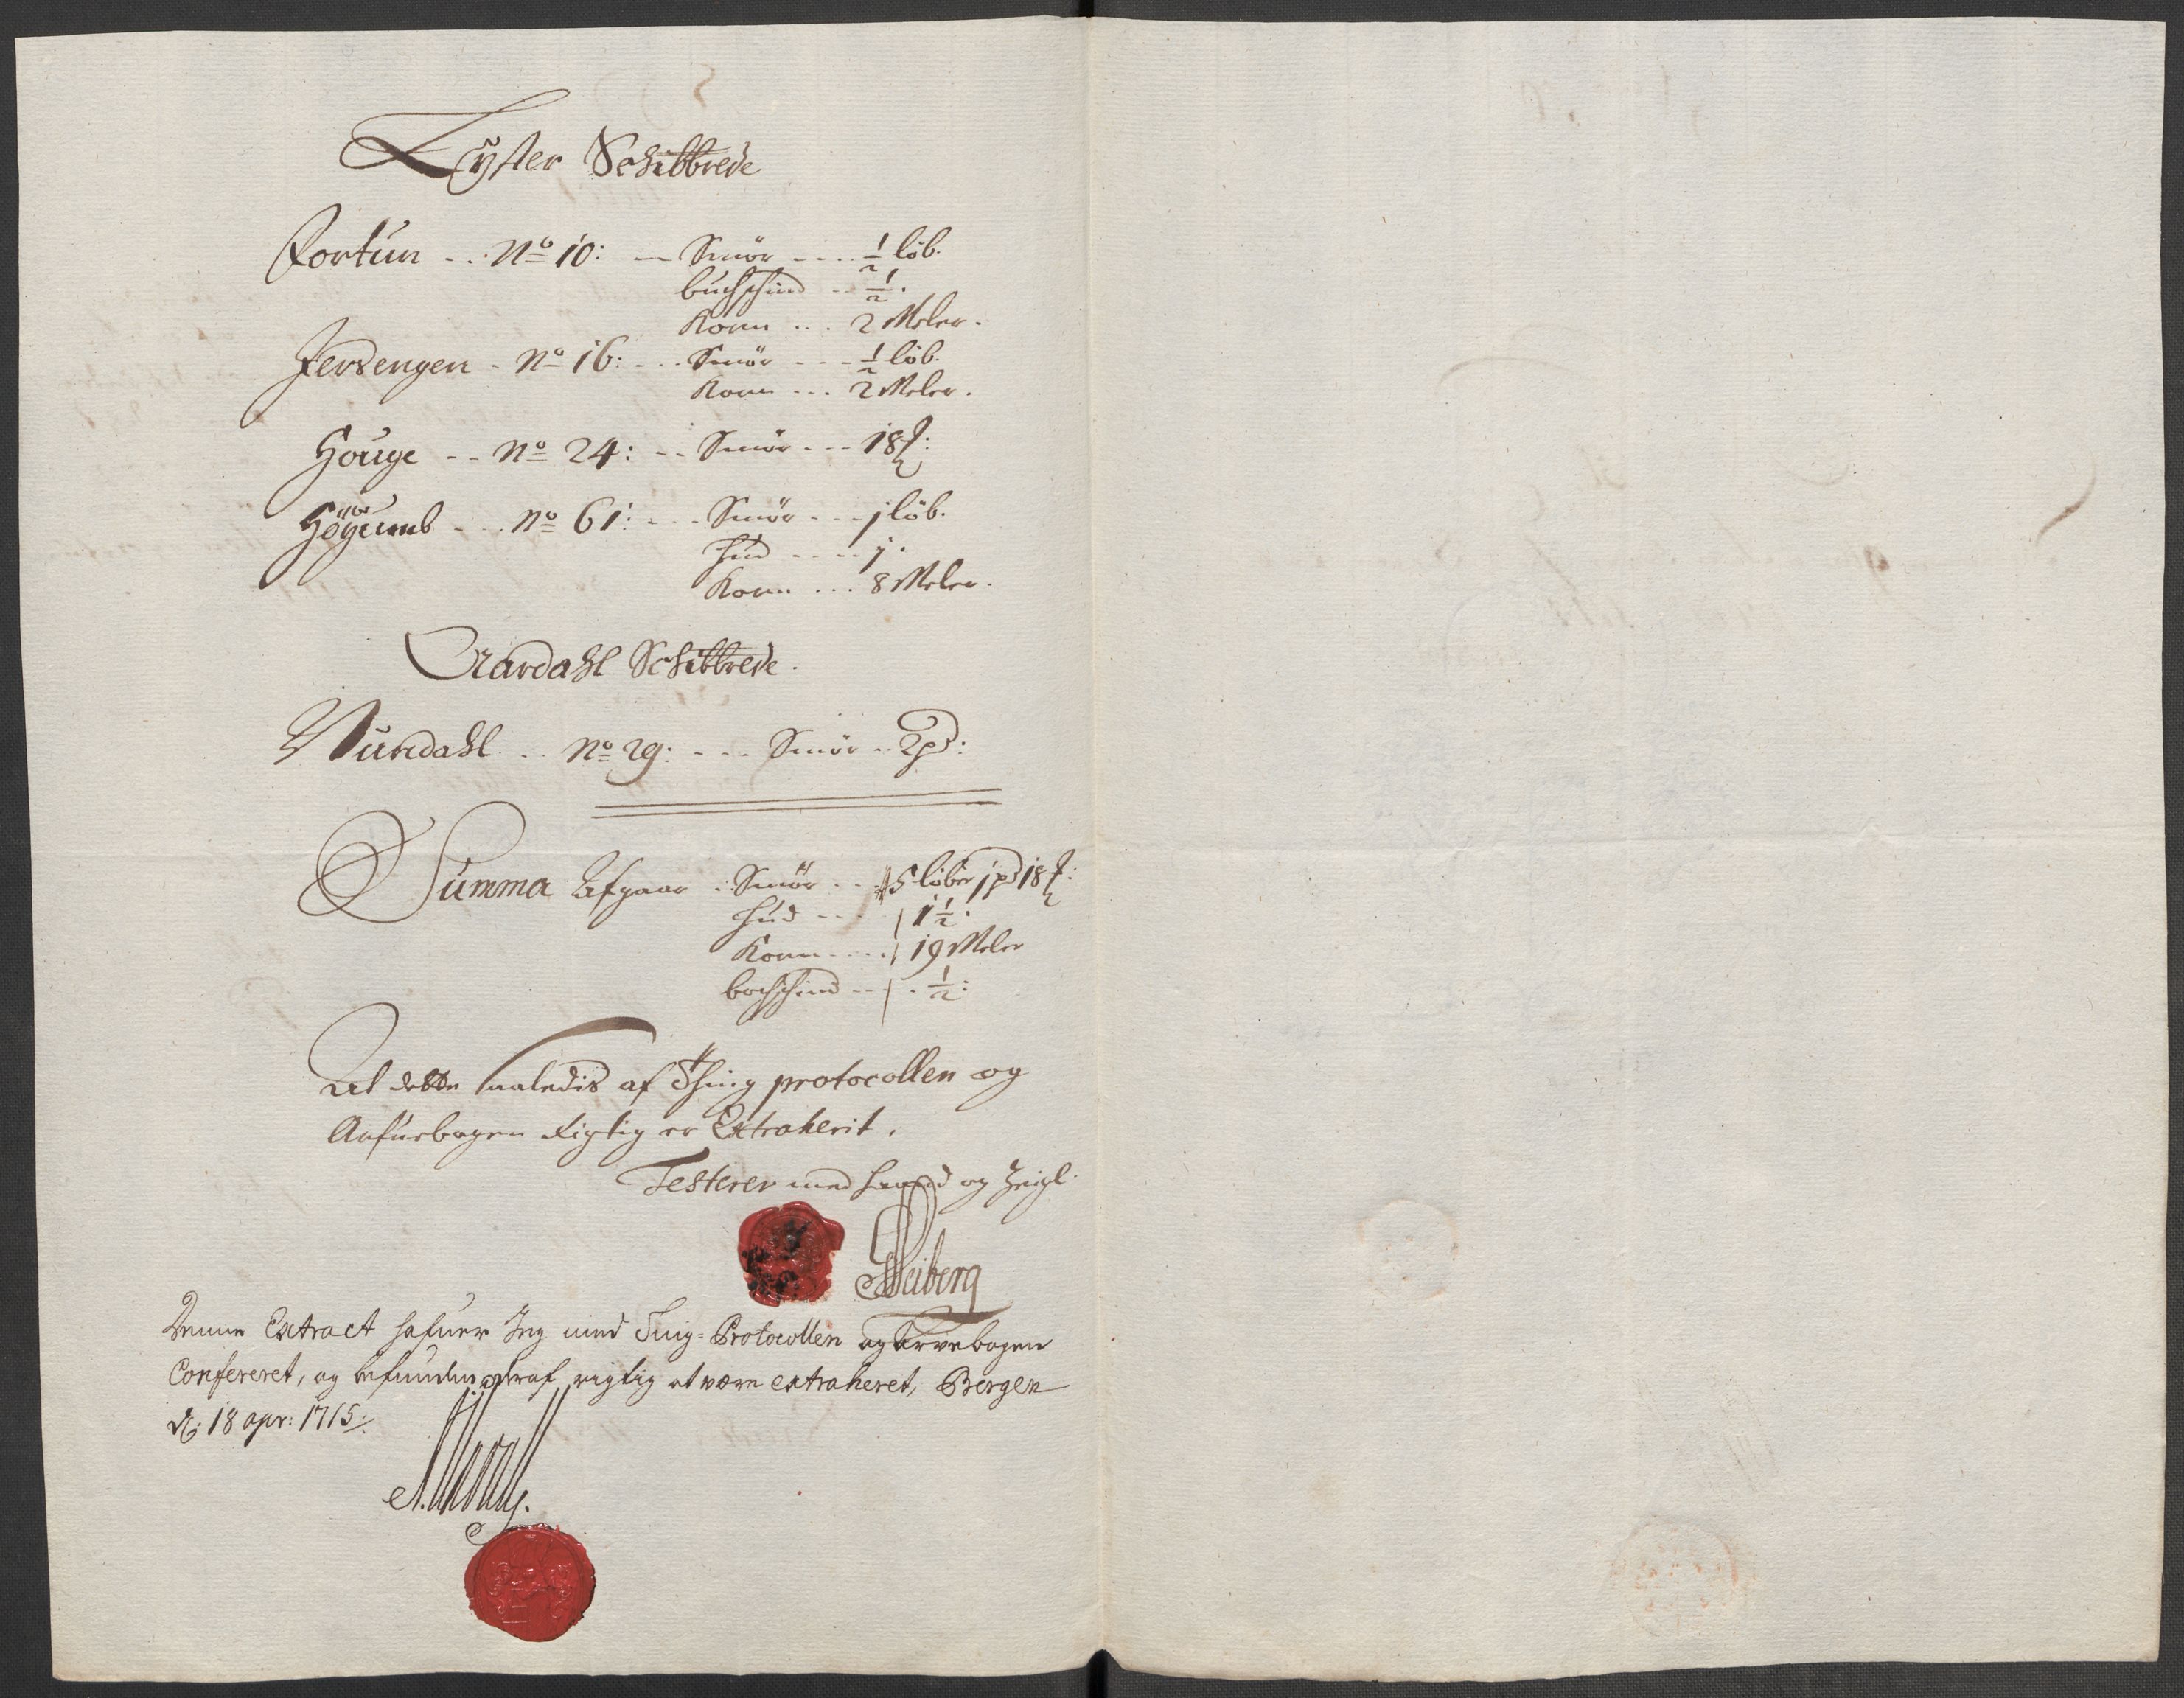 Lyster Schibbrede
Fortun - - . No 10: — Smör - - - - 1/2 löb.
buchschind - - 1/2.
Korn . . . 2 Meler.
Jersengen - No 16: - . . Smör - - - - 1/2 löb.
Korn - - . 2 Meler.
Houge - - No 24: - - Smör - - - 18 ℔:
Högeumb - . . No 61: - . . Smör - . - - 1 löb.
Hud - - - - 1.
Korn . . . 8 Meler.
Aardahl Schibbrede.
Nundahl . . No 29: - - - Smör - - 2 pd:
Summa Afgaar . Smör . . 5 löber 1 pd 18 ℔:
Hud - - . 1 1/2.
Korn - - - . 19 Meler
bochschind - - . 1/2:
At dette saaledis af Thing protocollen og
Anfürbogen Rigtig er Extraherit.
Testerer med Haand og Zeigl.
Heiberg
Denne Extract hafuer Jeg med Ting-Protocollen og Arvebogen
Confereret, og befunden deraf rigtig at være extraheret, Bergen
d: 18 apr: 1715: